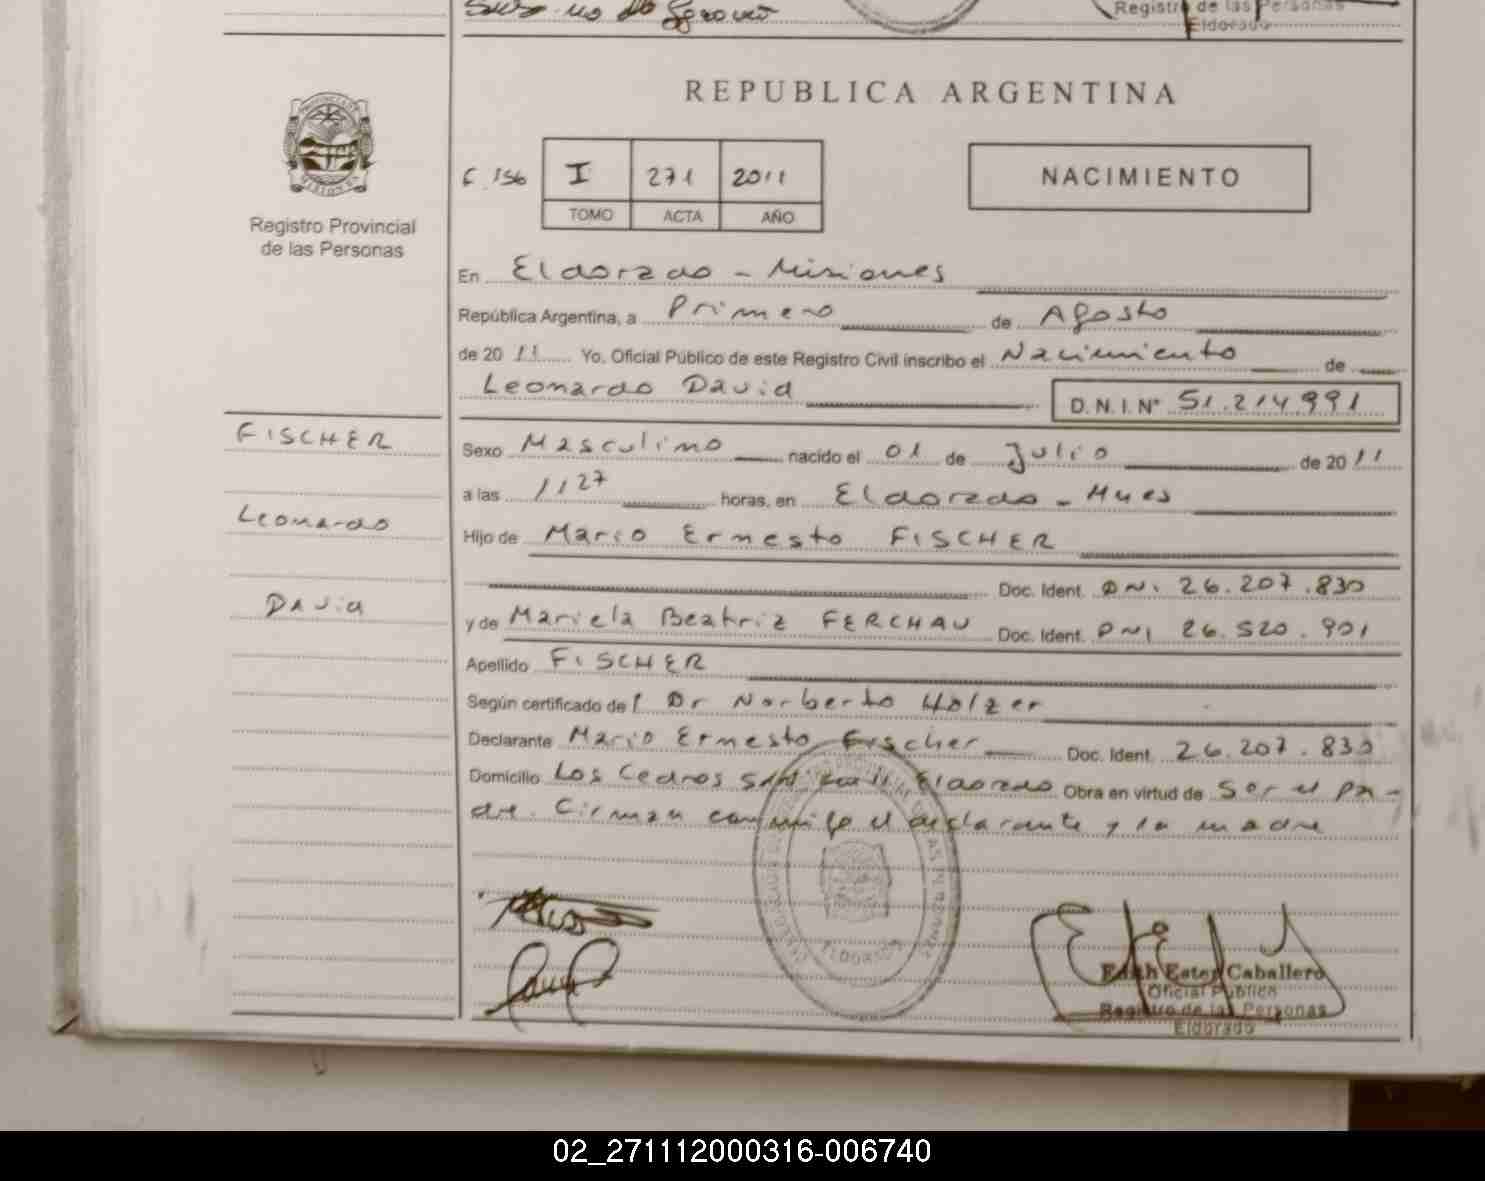 Registro de las Personas
Eldorado
REPUBLICA ARGENTINA
Registro Provincial
de las Personas
F. 156 I 271 2011
TOMO ACTA AÑO
NACIMIENTO
En Eldorado - Misiones
República Argentina, a Primero de Agosto
de 2011 Yo. Oficial Público de este Registro Civil inscribo el Nacimiento de
Leonardo David D.N.I.Nº 51.214.991
FISCHER
Leonardo
David
Sexo Masculino nacido el 01 de Julio de 2011
a las 11 27 horas, en Eldorado - Mnes
Hijo de Mario Ernesto FISCHER
Doc. Ident. DNI 26.207.830
y de Mariela Beatriz FERCHAU Doc. Ident. DNI 26.520.901
Apellido FISCHER
Según certificado del Dr Norberto Holzer
Declarante Mario Ernesto Fischer Doc. Ident. 26.207.830
Domicilio Los Cedros S/Nº Eldorado Obra en virtud de Ser el pa-
dre. Firman conmigo el declarante y la madre
ELDORADO
Edith Ester Caballero
Oficial Público
Registro de las Personas
Eldorado
02_271112000316-006740